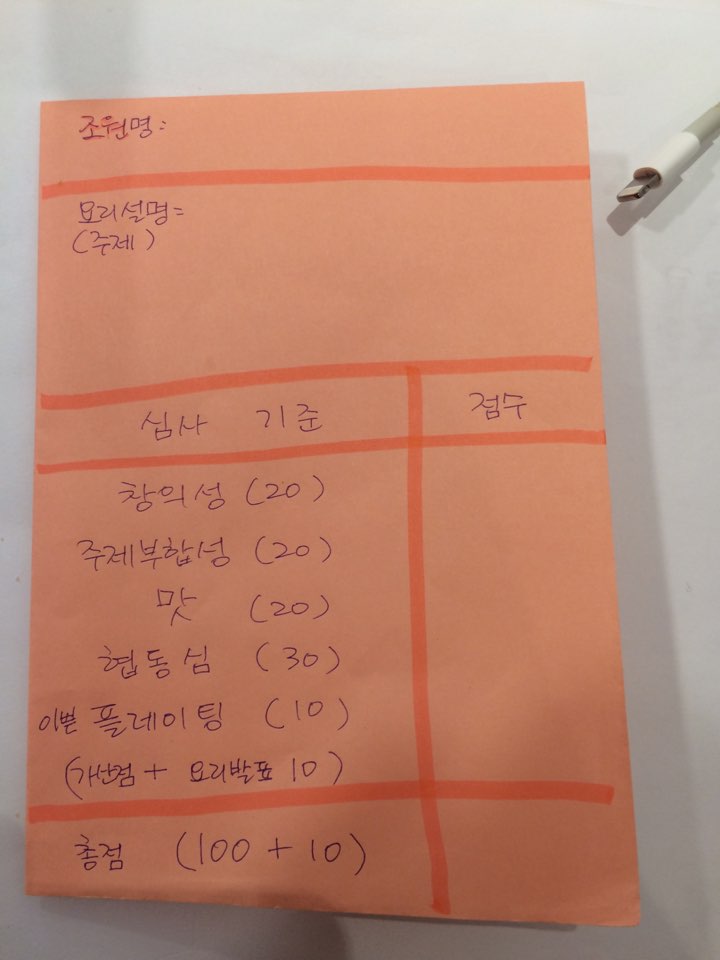 조원명:
요리설명:
(주제)
심사 기준 점수
창의성 (20)
주제부합성 (20)
맛 (20)
협동심 (30)
이쁜 플레이팅 (10)
(가산점 + 요리발표 10)
총점 (100 + 10)